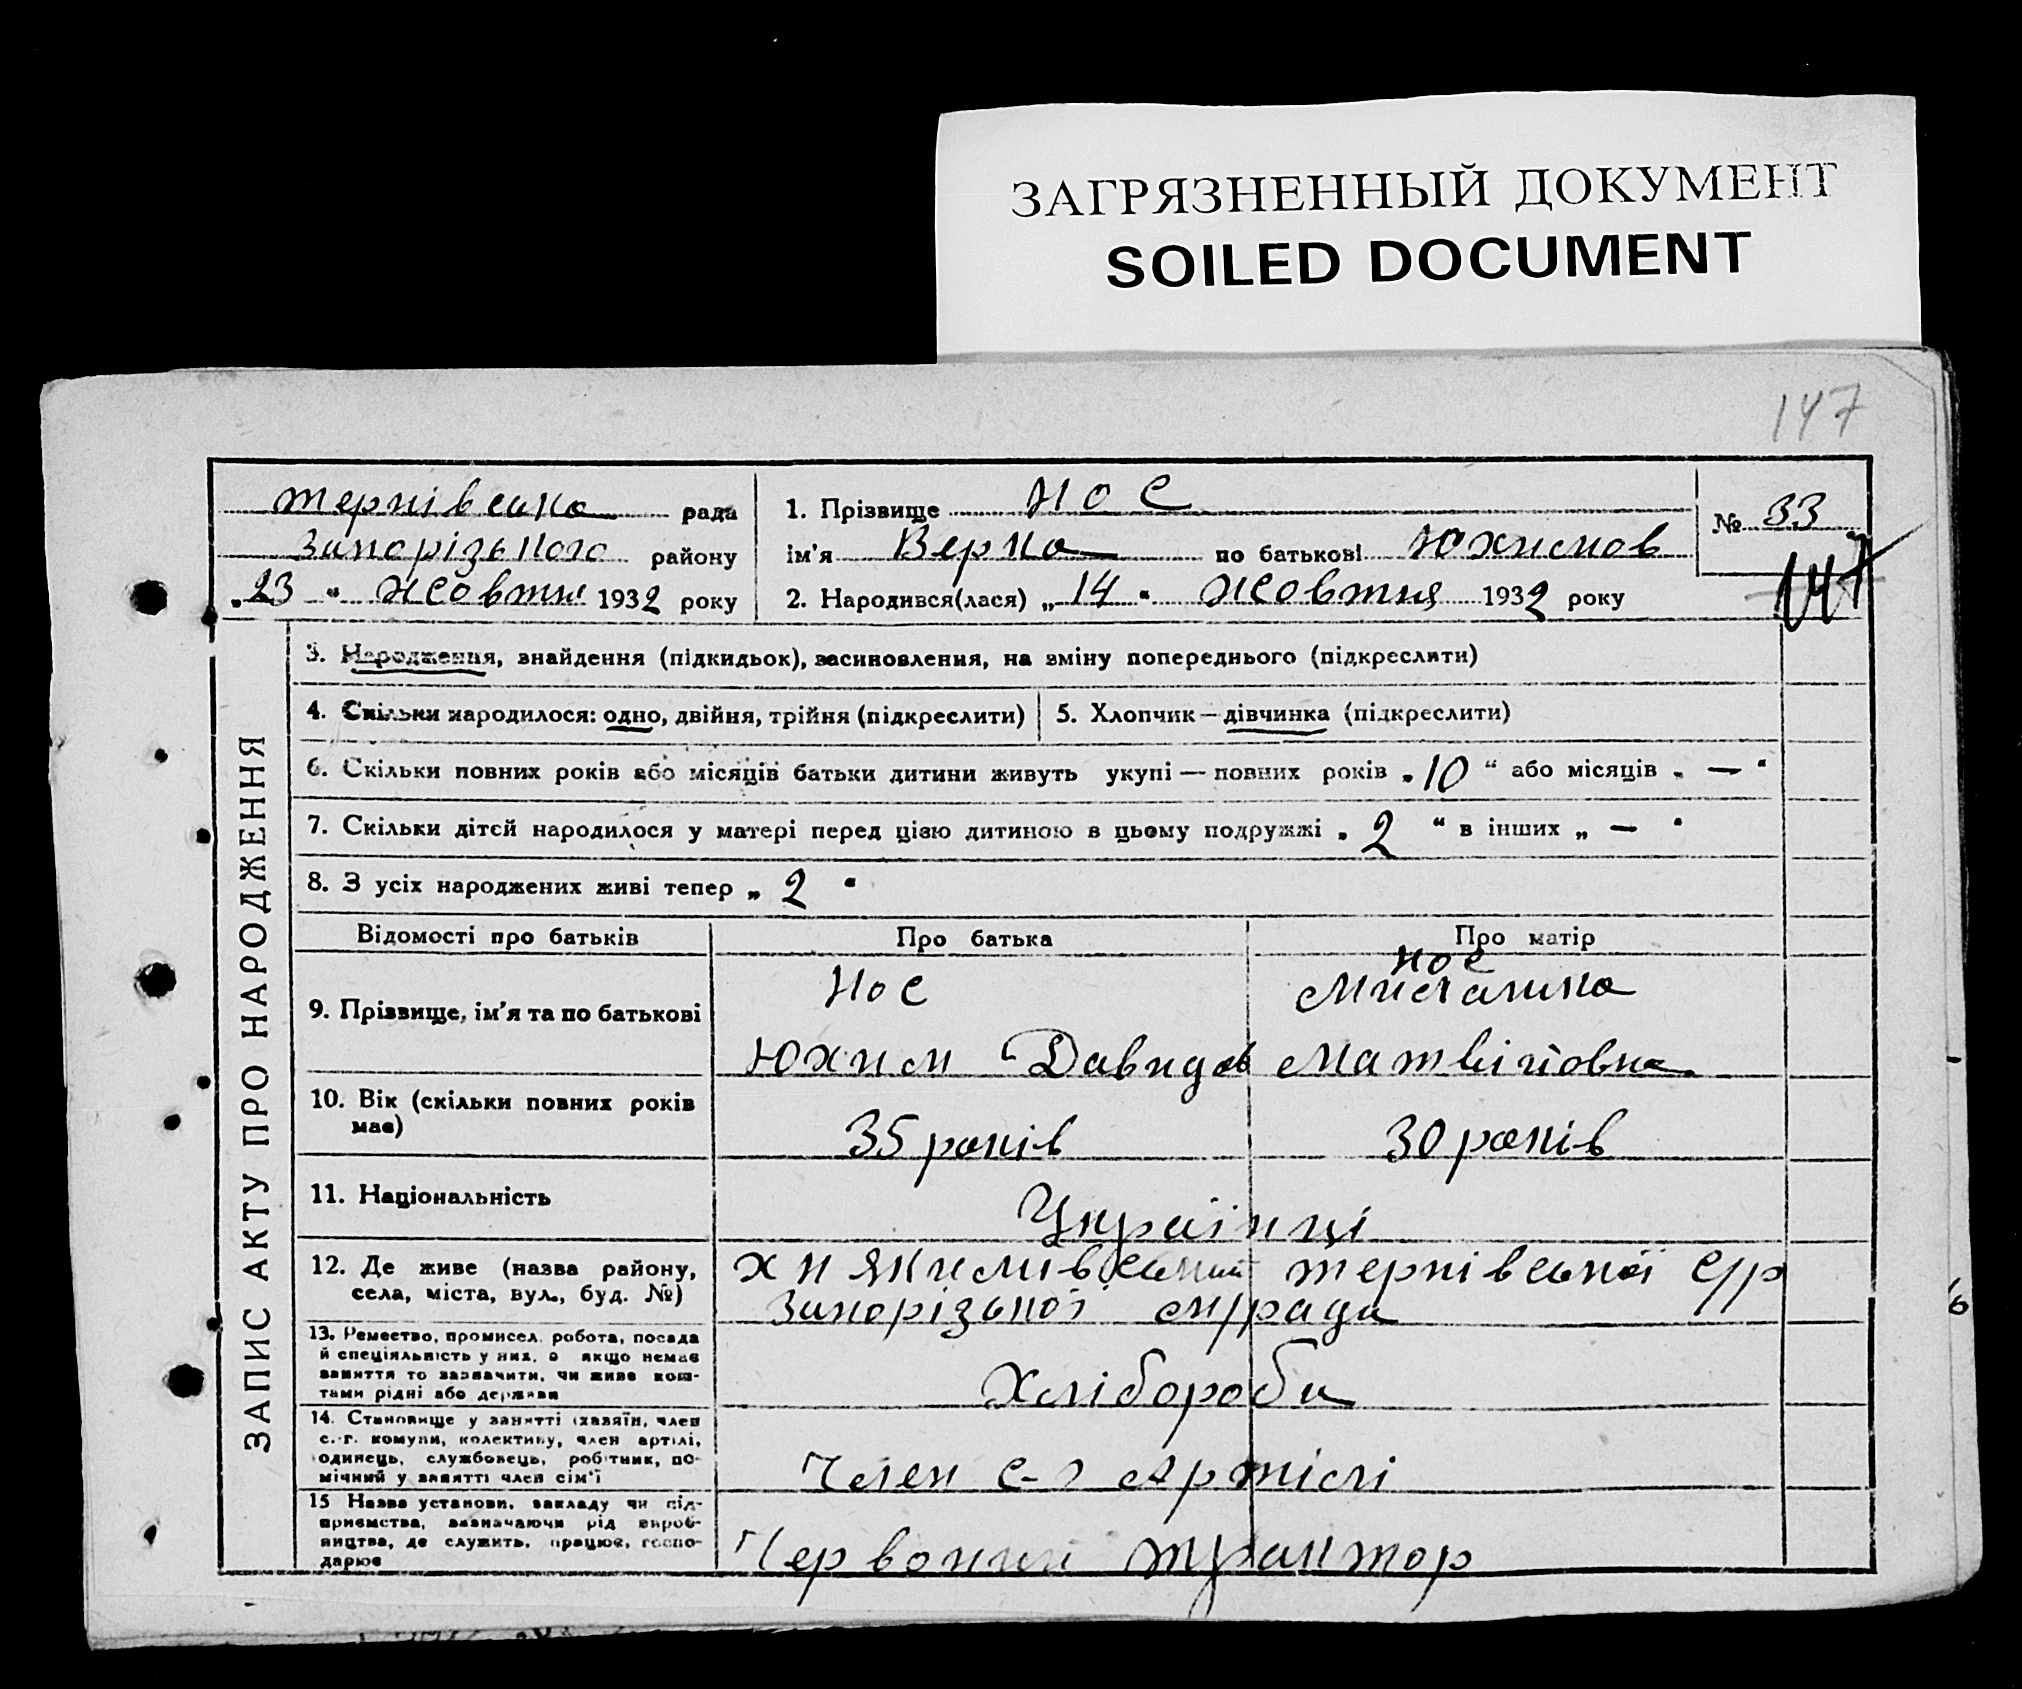 ЗАГРЯЗНЕННЫЙ ДОКУМЕНТ
SOILED DOCUMENT
147
Тернівська рада
Запорізького району
„23“ жовтня 1932 року
1. Прізвище Нос
ім'я Верка по батькові Юхимов
2. Народився(лася) „14“ жовтня 1932 року
№ 33
147
ЗАПИС АКТУ ПРО НАРОДЖЕННЯ
3. Народження, знайдення (підкидьок), засиновлення, на зміну попереднього (підкреслити)
4. Скільки народилося: одно, двійня, трійня (підкреслити)
5. Хлопчик — дівчинка (підкреслити)
6. Скільки повних років або місяців батьки дитини живуть укупі — повних років „10“ або місяців „—“
7. Скільки дітей народилося у матері перед цією дитиною в цьому подружжі „2“ в інших „—“
8. З усіх народжених живі тепер „2“
Відомості про батьків
Про батька
Про матір
9. Прізвище, ім'я та по батькові
Нос
Юхим Давидов
Нос
Матвіївовна
10. Вік (скільки повних років
має)
35 років
30 років
11. Національність
Українці
12. Де живе (назва району,
села, міста, вул., буд. №)
х Тернівської с/р
Запорізької м/ради
13. Ремество, промисел, робота, посада
й спеціяльність у них, а якщо немає
заняття то зазначити, чи живе кош-
тами рідні або держави
Хлібороби
14. Становище у занятті (хазяїн, член
с.-г. комуни, колективу, член артілі,
одинець, службовець, робітник, по-
мічний у занятті член сім'ї
Член с-г Артілі
15 Назва установи, закладу чи під-
приємства, зазначаючи рід вироб-
ництва, де служить, працює, госпо-
дарює
Червоний трактор